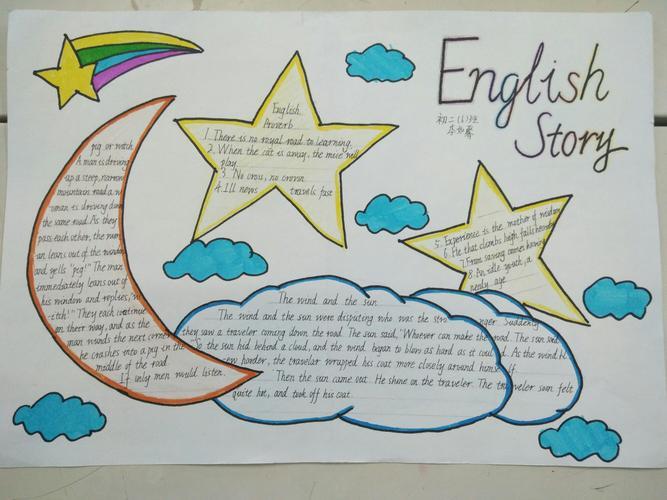 English
Story
初二(1)班
English
Proverb
1. There is no royal road to learning.
2. When the cat is away, the mice will
play.
3. No cross, no crown
4. Ill news travels fast
5. Experience is the mother of wisdom
6. He that climbs high falls heavily
7. From saving comes having
8. An idle youth, a
needy age
pig or witch
A man is driving
up a steep, narrow
mountain road a w
oman is driving down
the same road. As they
pass each other, the wom
an leans out of the window
and yells "pig!" The man
immediately leans out of
his window and replies, "w
itch!" They each continue
on their way, and as the
man rounds the next corner
he crashes into a pig in the
middle of the road.
If only men would listen.
The wind and the sun
The wind and the sun were disputing who was the stronger. Suddenly
they saw a traveler coming down the road. The sun said, "Whoever can make the road. The sun and
So the sun hid behind a cloud, and the wind began to blow as hard as it could. As the wind bl
ew harder, the traveler wrapped his coat more closely around himself.
Then the sun came out. He shine on the traveler. The traveler soon felt
quite hot, and took off his coat.